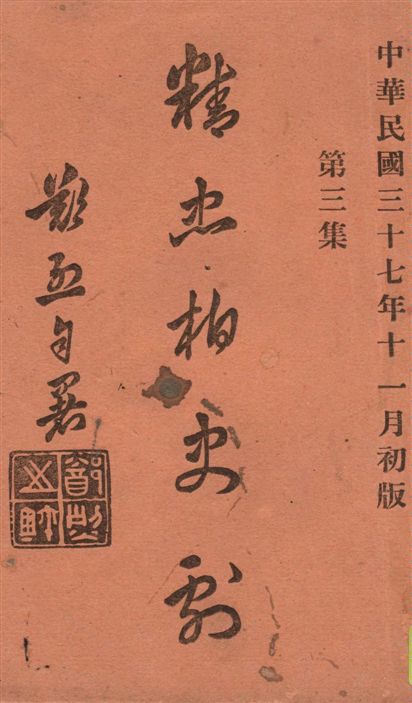 中華民國三十七年十一月初版
第三集
精忠柏史劇
五自署